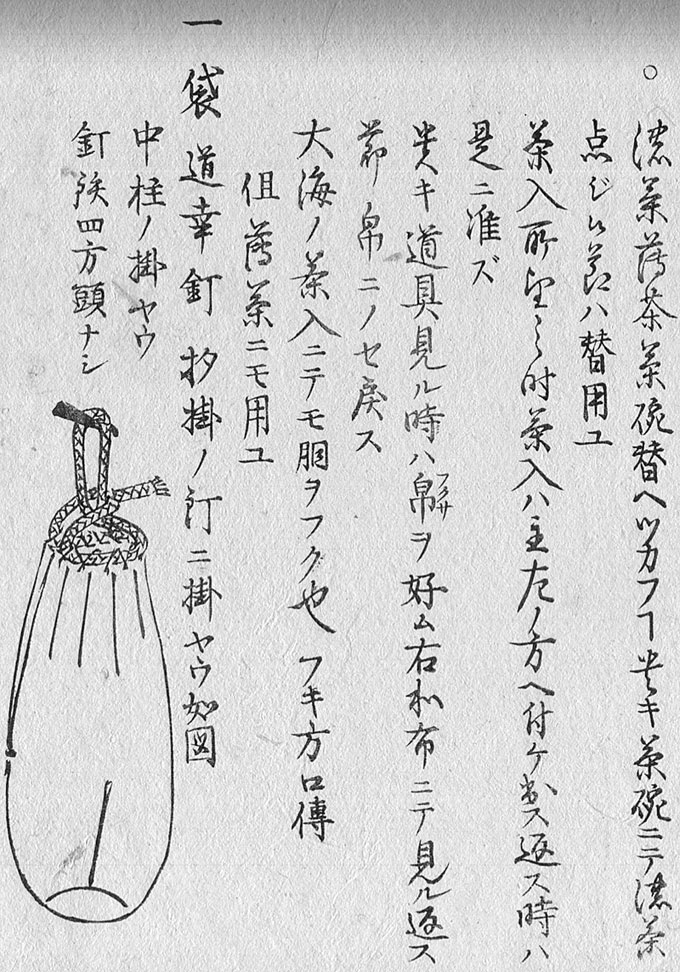 ○
濃茶薄茶茶碗替ヘツカフヿ貴キ茶碗ニテ濃茶
点ジ候節ハ替用ユ
茶入所望之時茶入ハ主左ノ方ヘ付ケ出ス返ス時ハ
是ニ准ズ
貴キ道具見ル時ハ帛ヲ好ム右和布ニテ見ル返ス
フクサ
節帛ニノセ戻ス
大海ノ茶入ニテモ胴ヲフク也フキ方口傳
但薄茶ニモ用ユ
一袋道幸釘 掛ノ釘ニ掛ヤウ如図
中柱ノ掛ヤウ
釘 四方頭ナシ